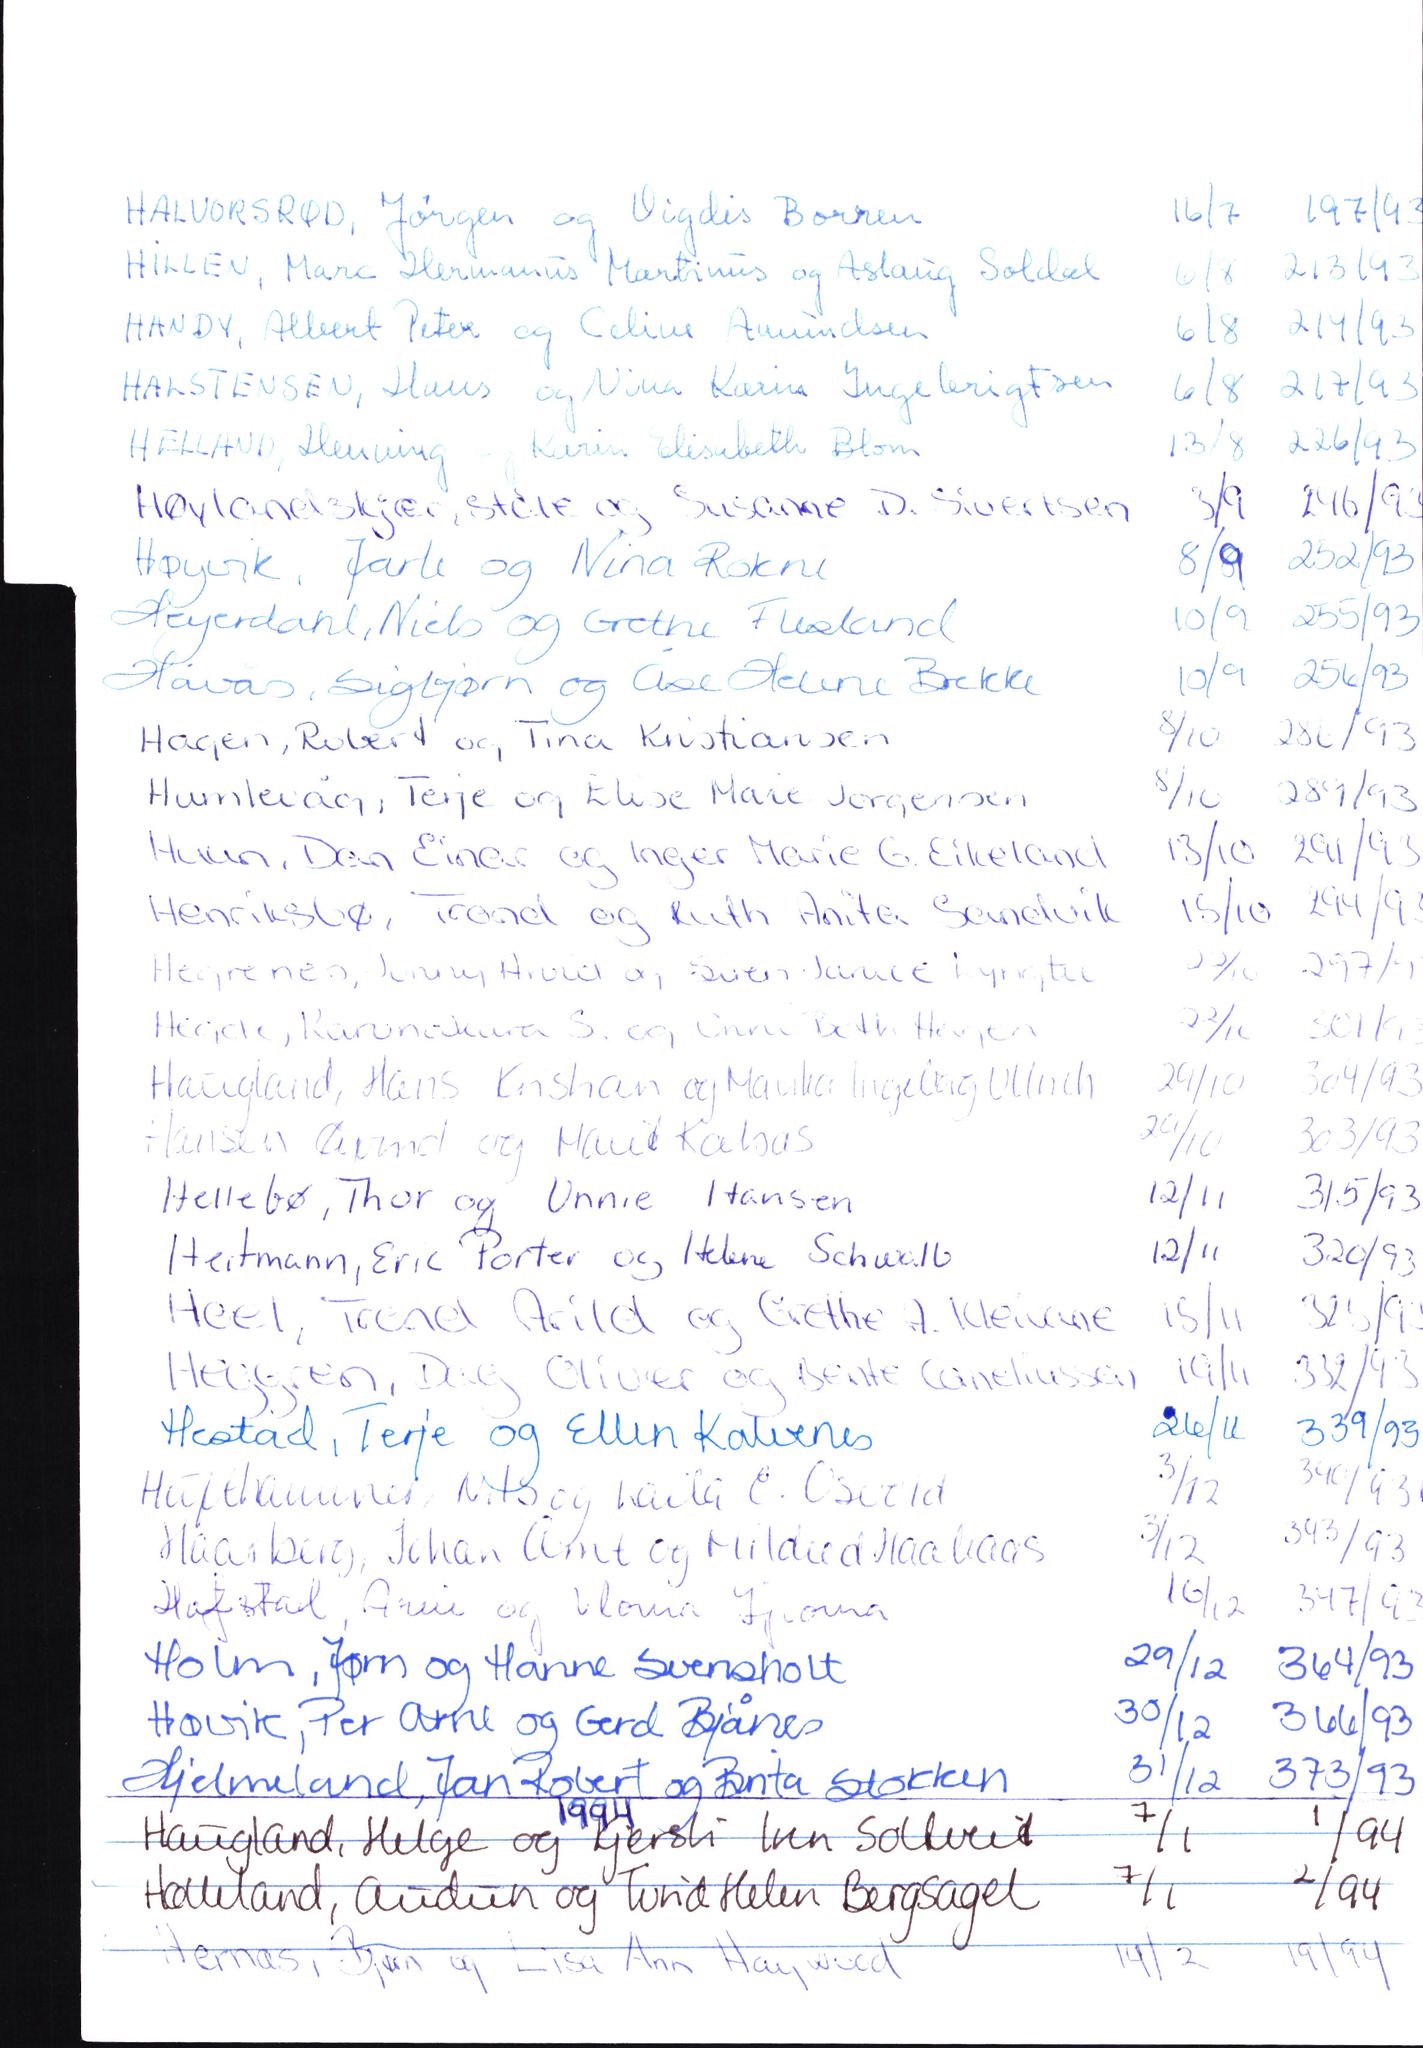 HALVORSRØD, Jørgen og Vigdis Borren 16/7 197/93
HILLEN, Marc Hermanus Martinus og Aslaug Soldal 6/8 213/93
HANDY, Albert Peter og Celine Amundsen 6/8 214/93
HALSTENSEN, Hans og Nina Karin Ingebrigtsen 6/8 217/93
HELLAND, Henning og Karin Elisabeth Blom 13/8 226/93
Høylandskjær, Ståle og Susanne D. Sivertsen 3/9 246/93
Høyvik, Jarle og Nina Rokne 8/9 252/93
Heyerdahl, Niels og Grethe 10/9 255/93
Håvås, Sigbjørn og Åse Helene Brekke 10/9 256/93
Hagen, Robert og Tina Kristiansen 8/10 286/93
Humlevåg, Terje og Elise Marie Jørgensen 8/10 289/93
Huun, Dan Einar og Inger Marie G. Eikeland 13/10 291/93
Henriksbø, Trond og Ruth Anita Sandvik 15/10 294/93
Hegrenes, og 297/
Hegde, S. og Unni Beth Hagen 301/93
Haugland, Hans Kristian og Marika Ingeborg Ullrich 29/10 304/93
Hansen Øivind og Marit Kalsås 29/10 303/93
Hellebø, Thor og Unnie Hansen 12/11 315/93
Heitmann, Eric Porter og Helene Schwalb 12/11 320/93
Heel, Trond Arild og Grethe A. Kleivane 15/11 325/93
Heggren, Dag Oliver og Bente Corneliussen 19/11 332/93
Hestad, Terje og Ellen Kalvenes 26/11 339/93
Hufthammer, Nils og Laila E. 3/12 340/93
Haarberg, Johan Arnt og Mildred Haahaas 3/12 343/93
Hafstad, Arne og 10/12 347/93
Holm, Jørn og Hanne Svensholt 29/12 364/93
Høvik, Per Arne og Gerd Bjånes 30/12 366/93
Hjelmeland, Jan Robert og Brita Stokken 31/12 373/93
1994
Haugland, Helge og Kjersti Iren Soltveit 7/1 1/94
Hølleland, Audun og Turid Helen Bergsagel 7/1 2/94
Hernas, Bjørn og Lisa Ann Haywood 14/2 19/94